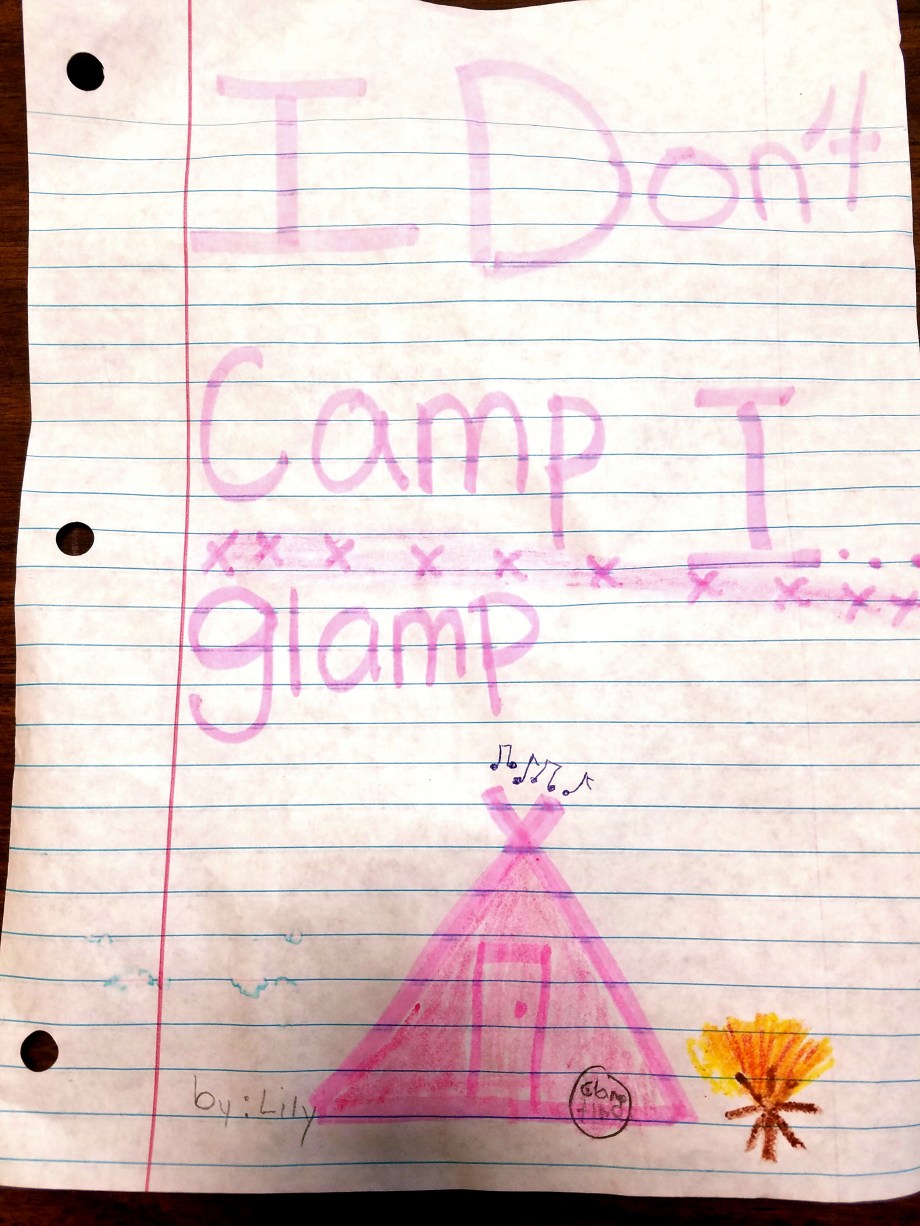 I Don't
Camp I...
x x x x x x x x x x
glamp
by: Lily